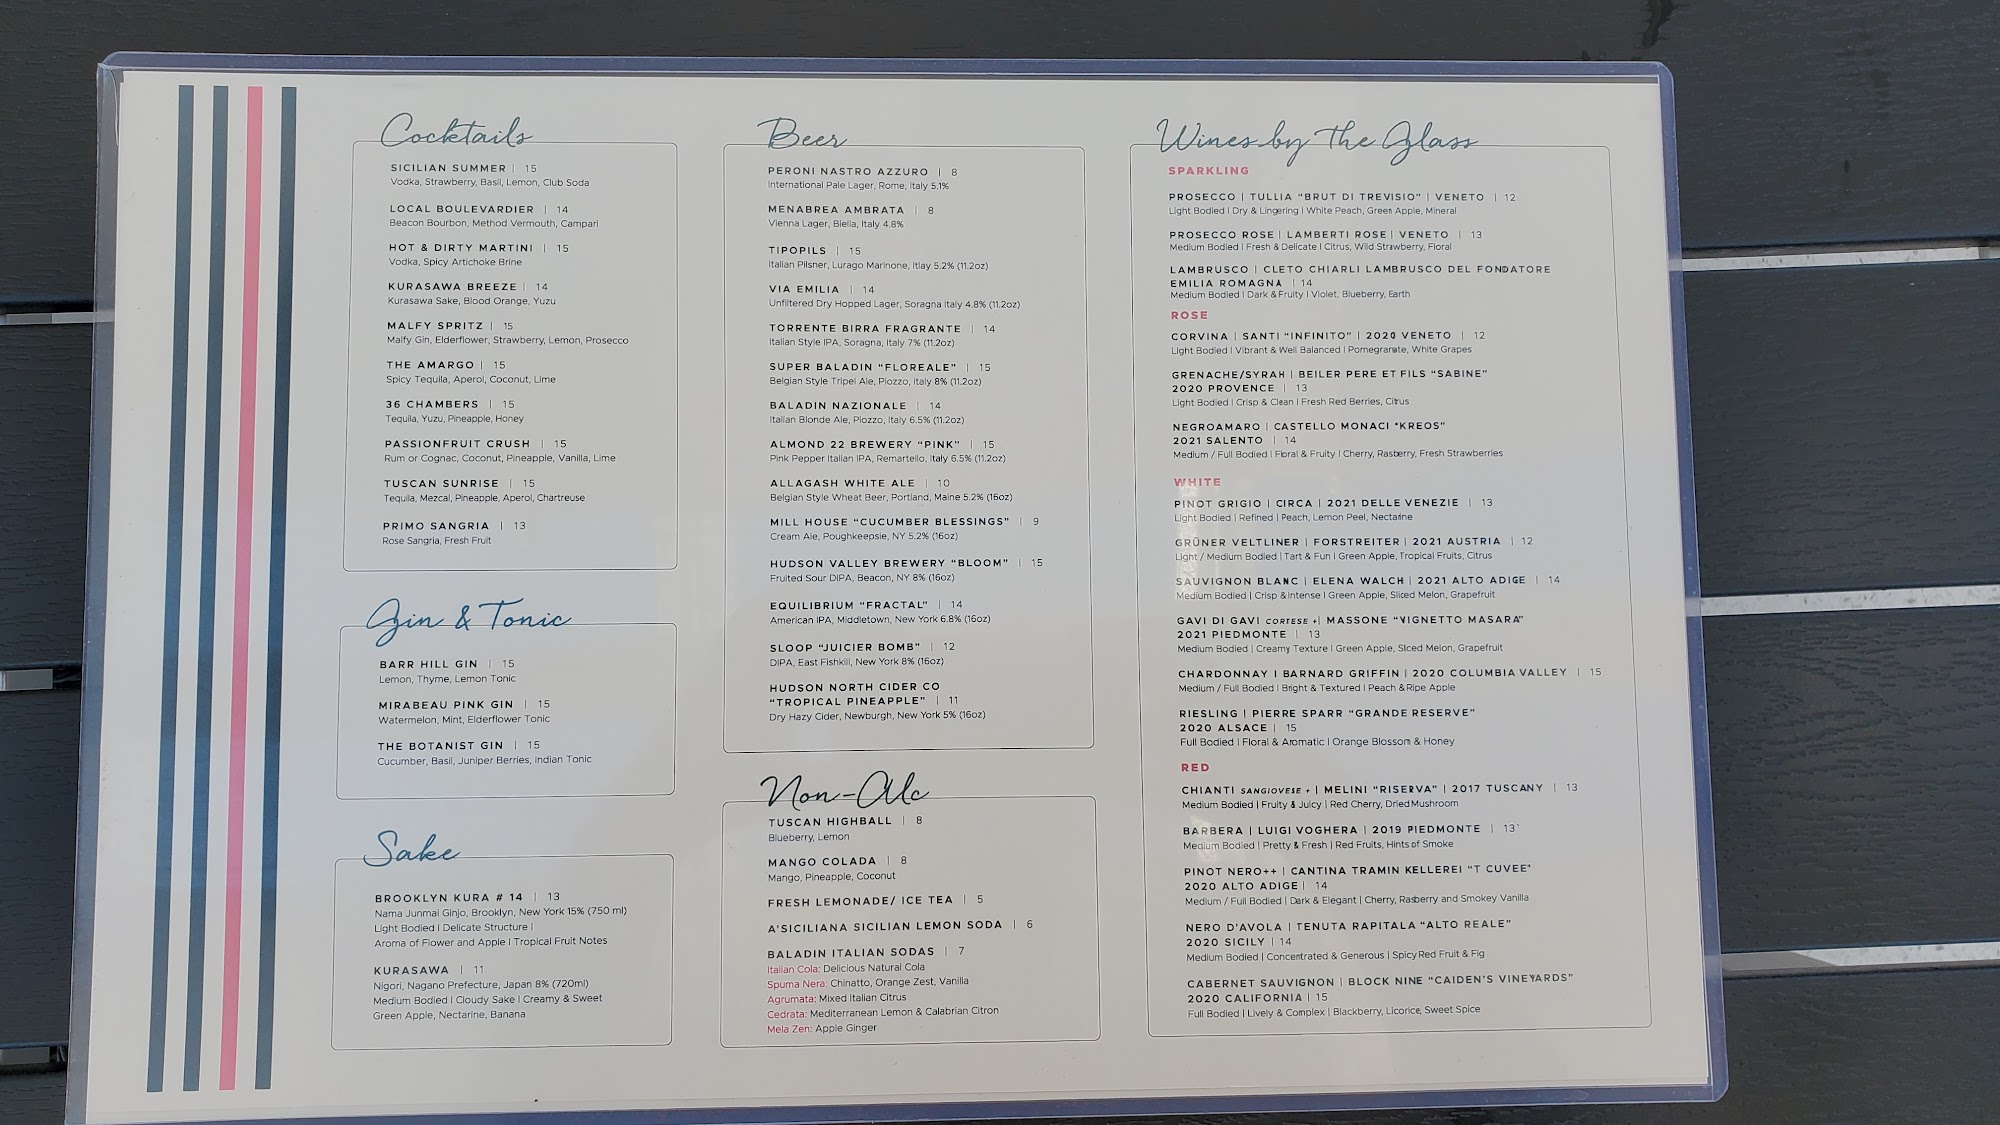 Cocktails
SICILIAN SUMMER | 15
Vodka, Strawberry, Basil, Lemon, Club Soda
LOCAL BOULEVARDIER | 14
Beacon Bourbon, Method Vermouth, Campari
HOT & DIRTY MARTINI | 15
Vodka, Spicy Artichoke Brine
KURASAWA BREEZE | 14
Kurasawa Sake, Blood Orange, Yuzu
MALFY SPRITZ | 15
Malfy Gin, Elderflower, Strawberry, Lemon, Prosecco
THE AMARGO | 15
Spicy Tequila, Aperol, Coconut, Lime
36 CHAMBERS | 15
Tequila, Yuzu, Pineapple, Honey
PASSIONFRUIT CRUSH | 15
Rum or Cognac, Coconut, Pineapple, Vanilla, Lime
TUSCAN SUNRISE | 15
Tequila, Mezcal, Pineapple, Aperol, Chartreuse
PRIMO SANGRIA | 13
Rose Sangria, Fresh Fruit
Gin & Tonic
BARR HILL GIN | 15
Lemon, Thyme, Lemon Tonic
MIRABEAU PINK GIN | 15
Watermelon, Mint, Elderflower Tonic
THE BOTANIST GIN | 15
Cucumber, Basil, Juniper Berries, Indian Tonic
Sake
BROOKLYN KURA # 14 | 13
Nama Junmai Ginjo, Brooklyn, New York 15% (750 ml)
Light Bodied | Delicate Structure |
Aroma of Flower and Apple | Tropical Fruit Notes
KURASAWA | 11
Nigori, Nagano Prefecture, Japan 8% (720ml)
Medium Bodied | Cloudy Sake | Creamy & Sweet
Green Apple, Nectarine, Banana
Beer
PERONI NASTRO AZZURO | 8
International Pale Lager, Rome, Italy 5.1%
MENABREA AMBRATA | 8
Vienna Lager, Biella, Italy 4.8%
TIPOPILS | 15
Italian Pilsner, Lurago Marinone, Itlay 5.2% (11.2oz)
VIA EMILIA | 14
Unfiltered Dry Hopped Lager, Soragna Italy 4.8% (11.2oz)
TORRENTE BIRRA FRAGRANTE | 14
Italian Style IPA, Soragna, Italy 7% (11.2oz)
SUPER BALADIN "FLOREALE" | 15
Belgian Style Tripel Ale, Piozzo, Italy 8% (11.2oz)
BALADIN NAZIONALE | 14
Italian Blonde Ale, Piozzo, Italy 6.5% (11.2oz)
ALMOND 22 BREWERY "PINK" | 15
Pink Pepper Italian IPA, Remartello, Italy 6.5% (11.2oz)
ALLAGASH WHITE ALE | 10
Belgian Style Wheat Beer, Portland, Maine 5.2% (16oz)
MILL HOUSE "CUCUMBER BLESSINGS" | 9
Cream Ale, Poughkeepsie, NY 5.2% (16oz)
HUDSON VALLEY BREWERY "BLOOM" | 15
Fruited Sour DIPA, Beacon, NY 8% (16oz)
EQUILIBRIUM "FRACTAL" | 14
American IPA, Middletown, New York 6.8% (16oz)
SLOOP "JUICIER BOMB" | 12
DIPA, East Fishkill, New York 8% (16oz)
HUDSON NORTH CIDER CO
"TROPICAL PINEAPPLE" | 11
Dry Hazy Cider, Newburgh, New York 5% (16oz)
Non-Alc
TUSCAN HIGHBALL | 8
Blueberry, Lemon
MANGO COLADA | 8
Mango, Pineapple, Coconut
FRESH LEMONADE/ ICE TEA | 5
A'SICILIANA SICILIAN LEMON SODA | 6
BALADIN ITALIAN SODAS | 7
Italian Cola: Delicious Natural Cola
Spuma Nera: Chinatto, Orange Zest, Vanilla
Agrumata: Mixed Italian Citrus
Cedrata: Mediterranean Lemon & Calabrian Citron
Mela Zen: Apple Ginger
Wines by the Glass
SPARKLING
PROSECCO | TULLIA "BRUT DI TREVISIO" | VENETO | 12
Light Bodied | Dry & Lingering | White Peach, Green Apple, Mineral
PROSECCO ROSE | LAMBERTI ROSE | VENETO | 13
Medium Bodied | Fresh & Delicate | Citrus, Wild Strawberry, Floral
LAMBRUSCO | CLETO CHIARLI LAMBRUSCO DEL FONDATORE
EMILIA ROMAGNA | 14
Medium Bodied | Dark & Fruity | Violet, Blueberry, Earth
ROSE
CORVINA | SANTI "INFINITO" | 2020 VENETO | 12
Light Bodied | Vibrant & Well Balanced | Pomegranate, White Grapes
GRENACHE/SYRAH | BEILER PERE ET FILS "SABINE"
2020 PROVENCE | 13
Light Bodied | Crisp & Clean | Fresh Red Berries, Citrus
NEGROAMARO | CASTELLO MONACI "KREOS"
2021 SALENTO | 14
Medium / Full Bodied | Floral & Fruity | Cherry, Rasberry, Fresh Strawberries
WHITE
PINOT GRIGIO | CIRCA | 2021 DELLE VENEZIE | 13
Light Bodied | Refined | Peach, Lemon Peel, Nectarine
GRÜNER VELTLINER | FORSTREITER | 2021 AUSTRIA | 12
Light / Medium Bodied | Tart & Fun | Green Apple, Tropical Fruits, Citrus
SAUVIGNON BLANC | ELENA WALCH | 2021 ALTO ADIGE | 14
Medium Bodied | Crisp & Intense | Green Apple, Sliced Melon, Grapefruit
GAVI DI GAVI CORTESE + | MASSONE "VIGNETTO MASARA"
2021 PIEDMONTE | 13
Medium Bodied | Creamy Texture | Green Apple, Sliced Melon, Grapefruit
CHARDONNAY | BARNARD GRIFFIN | 2020 COLUMBIA VALLEY | 15
Medium / Full Bodied | Bright & Textured | Peach & Ripe Apple
RIESLING | PIERRE SPARR "GRANDE RESERVE"
2020 ALSACE | 15
Full Bodied | Floral & Aromatic | Orange Blossom & Honey
RED
CHIANTI SANGIOVESE + | MELINI "RISERVA" | 2017 TUSCANY | 13
Medium Bodied | Fruity & Juicy | Red Cherry, Dried Mushroom
BARBERA | LUIGI VOGHERA | 2019 PIEDMONTE | 13
Medium Bodied | Pretty & Fresh | Red Fruits, Hints of Smoke
PINOT NERO++ | CANTINA TRAMIN KELLEREI "T CUVEE"
2020 ALTO ADIGE | 14
Medium / Full Bodied | Dark & Elegant | Cherry, Rasberry and Smokey Vanilla
NERO D'AVOLA | TENUTA RAPITALA "ALTO REALE"
2020 SICILY | 14
Medium Bodied | Concentrated & Generous | Spicy Red Fruit & Fig
CABERNET SAUVIGNON | BLOCK NINE "CAIDEN'S VINEYARDS"
2020 CALIFORNIA | 15
Full Bodied | Lively & Complex | Blackberry, Licorice, Sweet Spice